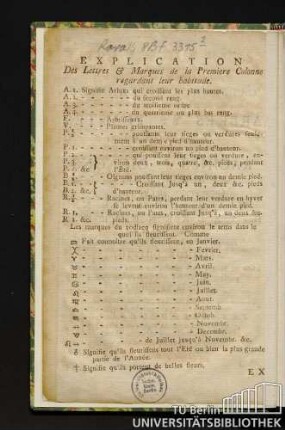 EXPLICATION
Des Lettres & Marques de la Premiere Colonne
regardant leur habitude.
A. 1. Signifie Arbres qui croissent les plus hauts.
A. 2. - - - - du second rang.
A. 3. - - - - du troisieme ordre
A. 4. - - - - du quatrieme ou plus bas rang.
F. - - - - Arbrisseaux.
V. - - - - Plantes grimpantes.
P. ½ - - - - poussants leur tieges ou verdures seulement à un demi pied d'hauteur.
P. 1. - - - - poussent environ un pied d'hauteur.
P. 2. - - - - qui poussent leur tieges ou verdure, environ
P. 3. &c. deux, trois, quatre, &c. pieds, pendant
l'Eté.
B. ½ - - Oignons poussent leur tieges environ un demie pied.
B. 1. - - - Croissent Jusq'à un, deux &c. pieds
d'hauteur.
R. ½ - - Racines, ou Pates, perdant leur verdure en hyver
R. 1. - - Racines, ou Pates, croissent Jusq'à, un deux &c.
pieds.
Les marques du zodiaque signifient
qu'ils fleurissent. Comme
♑ Fait connoitre qu'ils fleurissent, en Janvier.
- - - - Fevrier.
- - - - Mars.
- - - - Avril.
- - - - May.
- - - - Juin.
- - - - Juillet.
- - - - Aout.
- - - - Septemb.
- - - - Octob.
- - - - Novembr.
- - - - Decembr.
- - - - de Juillet jusq'à Novembr. &c.
Signifie qu'ils fleurissent tout l'Eté ou bien la plus grande
partie de l'Année.
† Signifie qu'ils portent de belles fleurs.
EX
TU Berlin
UNIVERSITÄTSBIBLIOTHEK